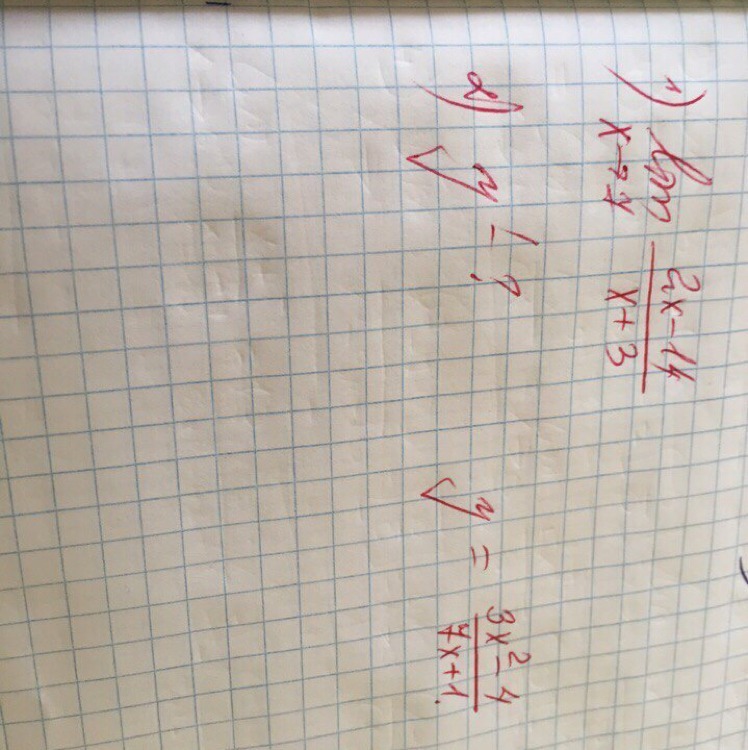 1) lim x→7 (2x-14)/(x+3)
2) y' - ? y = (3x²-4)/(7x+1)